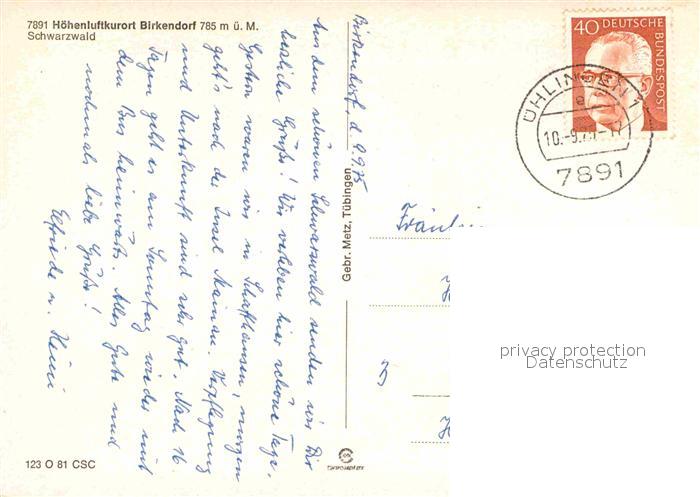 7891 Höhenluftkurort Birkendorf 785 m ü. M.
Schwarzwald
Birkendorf, d. 9.9.75
Aus dem schönen Schwarzwald senden wir Dir
herzliche Grüße! Wir verleben hier schöne Tage.
Gestern waren wir in Schaffhausen, morgen
geht's nach der Insel Mainau. Verpflegung
und Unterkunft sind sehr gut. Nach 16
Tagen geht es am Sonntag wieder mit
dem Bus heimwärts. Alles Gute und
nochmals liebe Grüße!
Elfriede u. Heini
Gebr. Metz, Tübingen
123 O 81 CSC
40 DEUTSCHE
BUNDESPOST
ÜHLINGEN 1
e
7891
Fräulein
privacy protection
Datenschutz